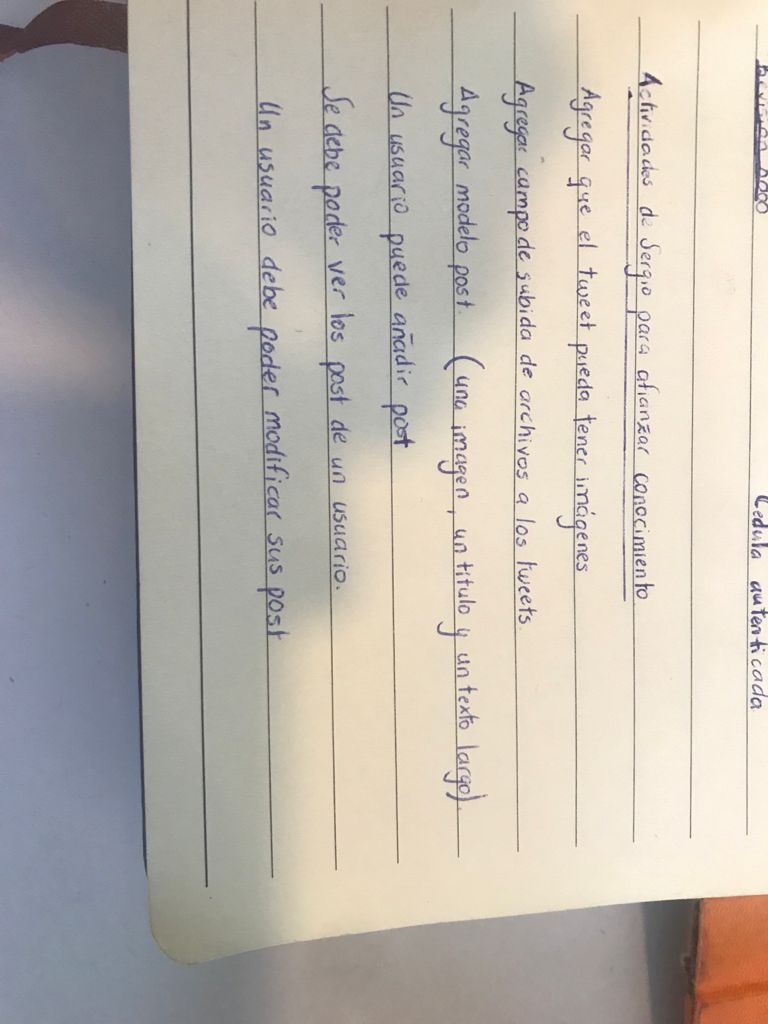 Cedula autenticada
Actividades de Sergio para afianzar conocimiento
Agregar que el tweet pueda tener imágenes
Agregar campo de subida de archivos a los tweets.
Agregar modelo post. (una imagen, un titulo y un texto largo).
Un usuario puede añadir post
Se debe poder ver los post de un usuario.
Un usuario debe poder modificar sus post